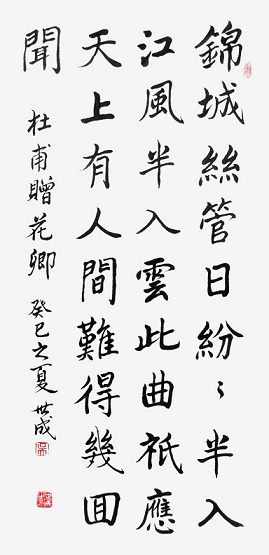 錦城絲管日紛〻半入
江風半入雲此曲祇應
天上有人間難得幾囬
聞
杜甫贈花卿 癸巳之夏 世成